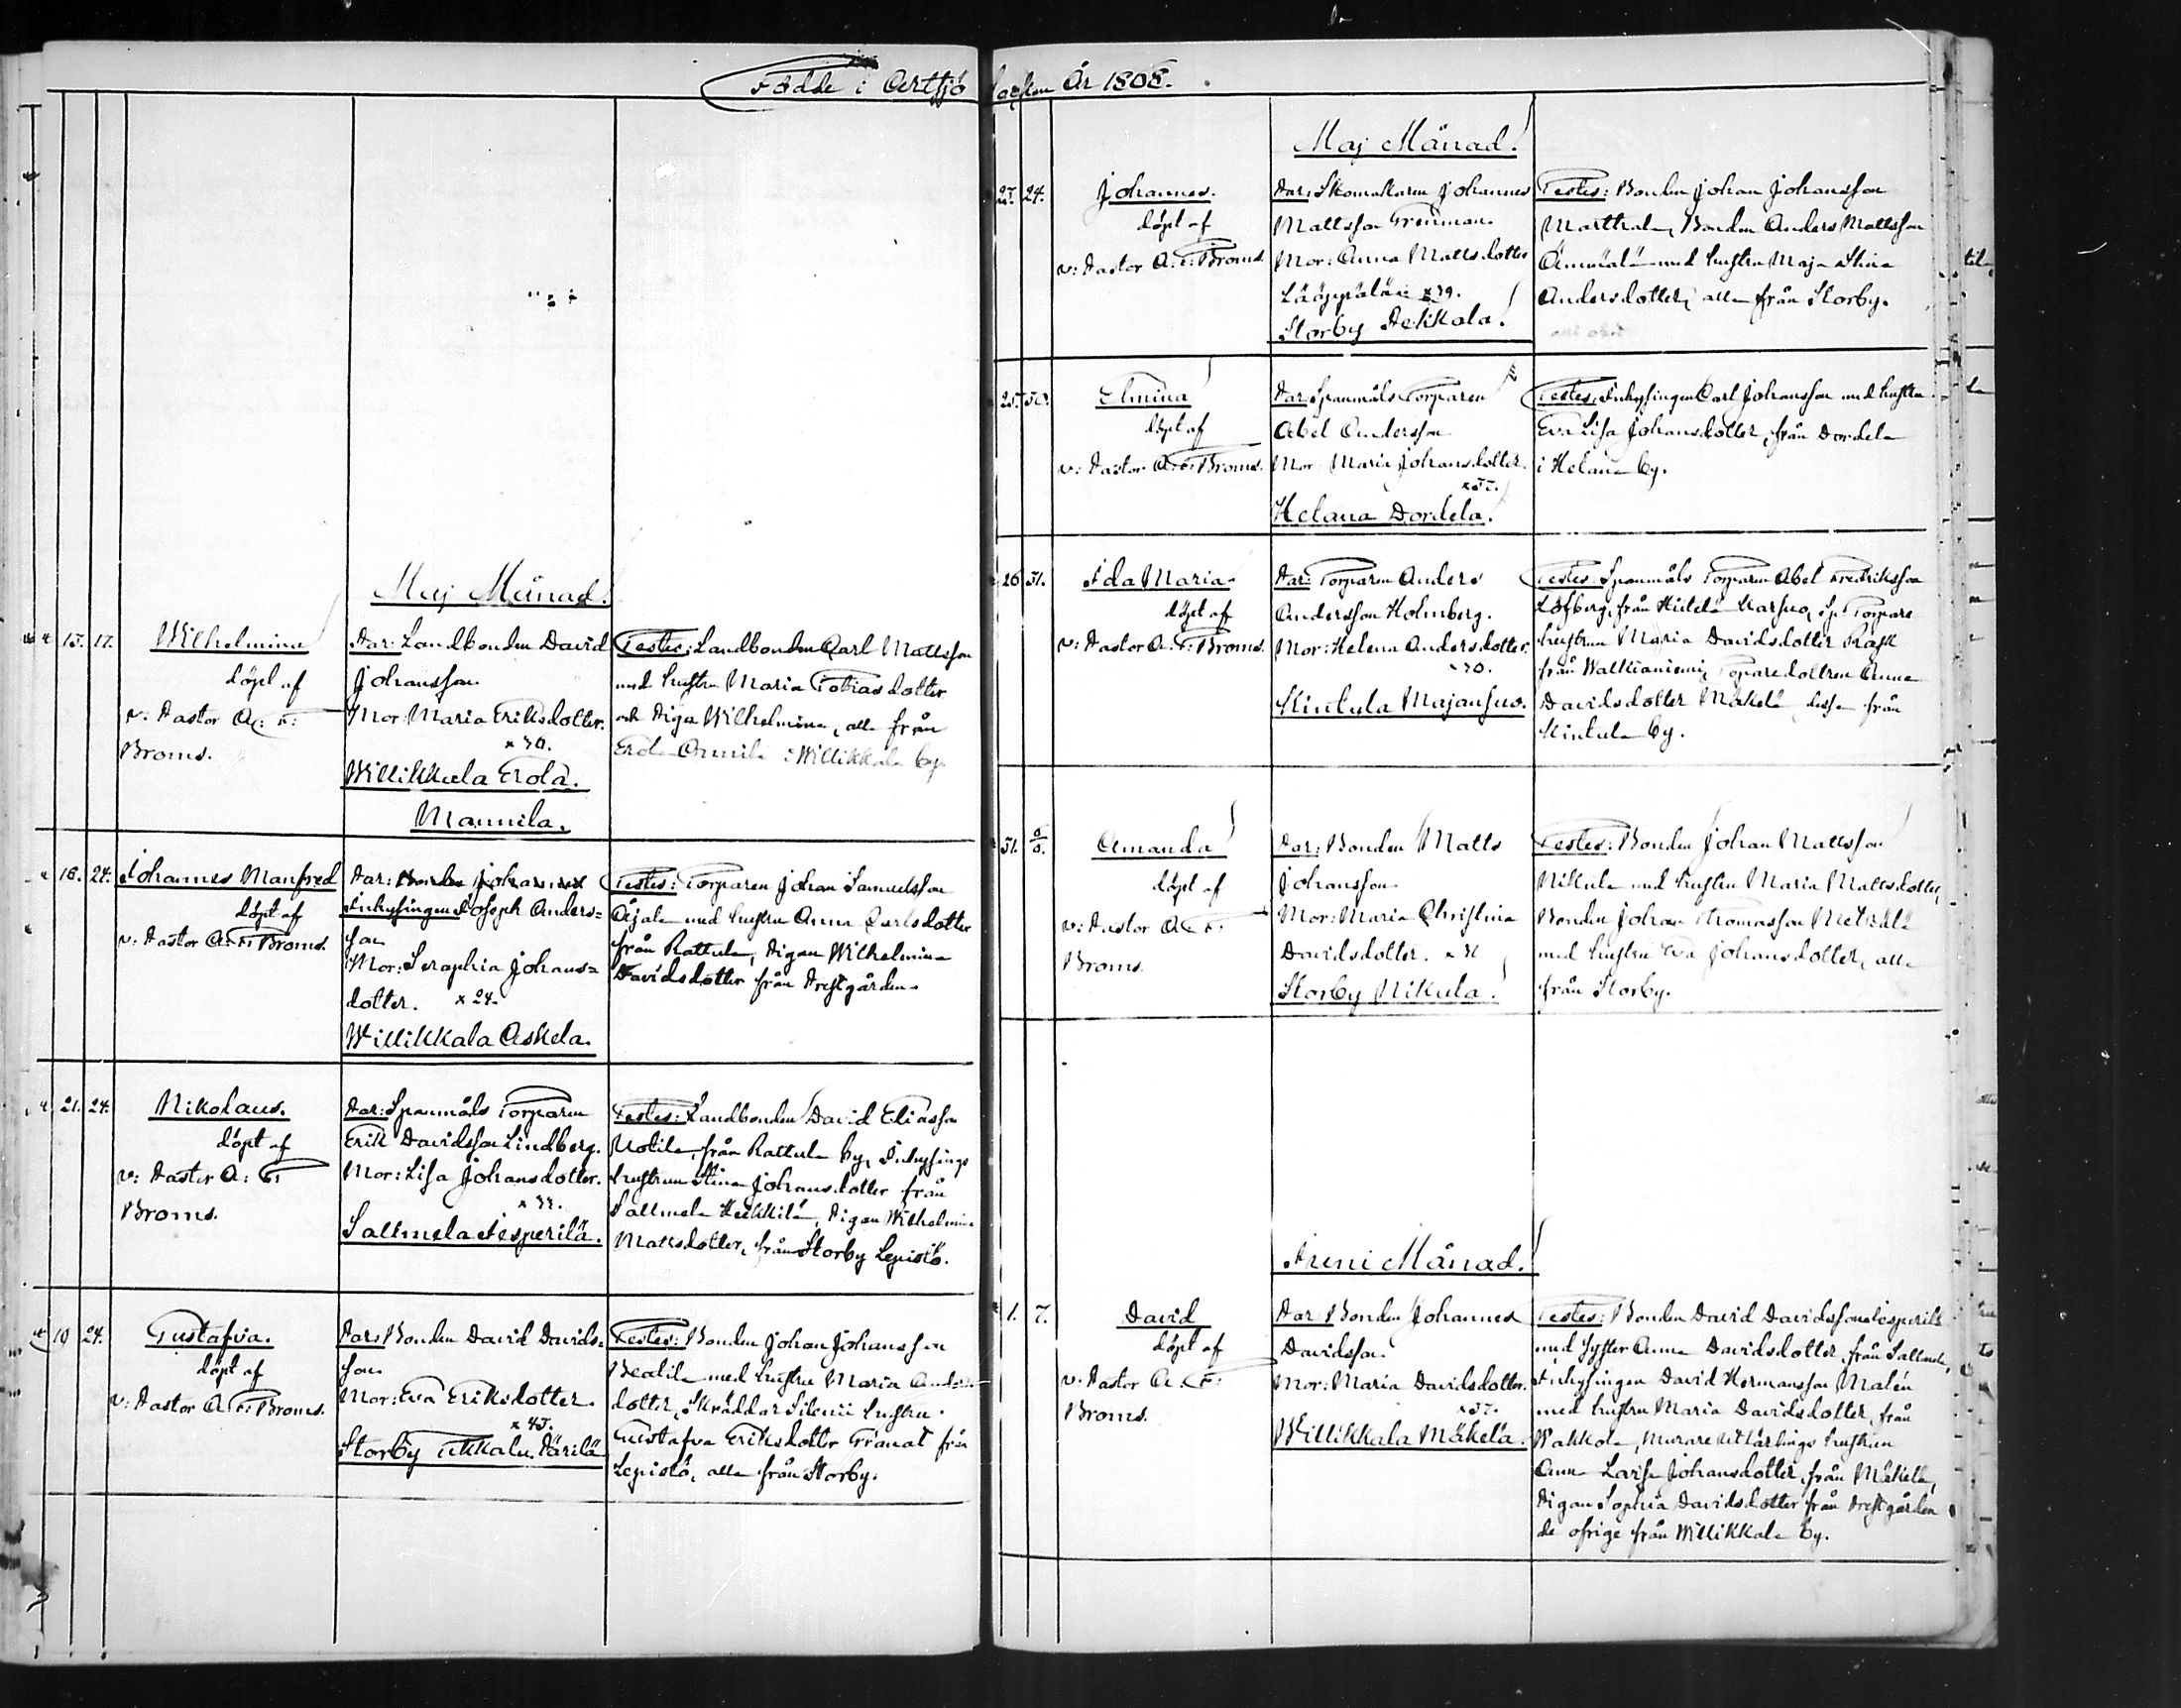 Födde i Artsjö
Maj Månad!
15. 17. Wilhelmina
döpt af
v: Pastor A: F:
Broms.
Par: Landbonden David
Johansson
Mor: Maria Eriksdotter.
x 30.
Willikkala Erola.
Mannila.
Testes: Landbonden Carl Mattsson
med hustru Maria Tobiasdotter
och Pigan Wilhelmina, alla från
Erola i Willikkala by.
18. 24. Johannes Manfred
döpt af
v: Pastor A: F: Broms.
Par:
Inhysingen Joseph Anders=
son
Mor: Seraphia Johans=
dotter. x 24.
Willikkala Askela.
Testes: Torparen Johan Samuelsson
Äjälä med hustru Anna Carlsdotter
från Rattula, Pigan Wilhelmina
Davidsdotter från Prestgården.
21. 24. Nikolaus.
döpt af
v: Pastor A: F:
Broms.
Par: Spanmåls Torparen
Erik Davidsson Lindberg.
Mor: Lisa Johansdotter.
x 33.
Salmela Jesperilä.
Testes: Landbonden David Eliasson
Uotila, från Rattula by, Inhysings
hustrun Stina Johansdotter från
Salmela Heikkilä, Pigan Wilhelmina
Mattsdotter, från Storby Lepistö.
10 24. Gustafva.
döpt af
v: Pastor A. F: Broms.
Par: Bonden David Davids=
son
Mor: Eva Eriksdotter.
x 45.
Storby Ukkala Pärilä
Testes: Bonden Johan Johansson
med hustru Maria Anders
dotter, Skräddar hustru
Gustafva Eriksdotter Granat från
Lepistö, alla från Storby.
Socken År 1868.
Maj Månad!
23. 24. Johannes.
döpt af
v: Pastor A: F: Broms.
Par: Skomakaren Johannes
Mattsson Grenman.
Mor: Anna Mattsdotter
x 39.
Storby Pekkala!
Testes: Bonden Johan Johansson
Marttala, Bonden Anders Mattsson
med hustru Maja Stina
Andersdotter, alla från Storby.
25. 30. Elmina
döpt af
v: Pastor A: F: Broms.
Par: Spanmåls Torparen
Abel Andersson
Mor: Maria Johansdotter.
Helana Dordela!
Testes: Inhysingen Carl Johansson med hustru
Eva Lisa Johansdotter, från Dordela
i Helana by.
26 31. Ida Maria
döpt af
v: Pastor A: F: Broms.
Par: Torparen Anders
Andersson Holmberg.
Mor: Helena Andersdotter.
x 30.
Kinttula Majansuo.
Testes: Spanmåls Torparen Abel Fredriksson
Löfberg, från Karsuo, Torpare
hustrun Maria Davidsdotter Rask
från Walkianiemi, Torparedottren Anna
Davidsdotter Mäkelä, dessa från
Kinttula by.
31. Amanda
döpt af
v: Pastor A. F:
Broms.
Par: Bonden Matts
Johansson
Mor: Maria Christina
Davidsdotter.
Storby Nikula!
Testes: Bonden Johan Mattsson
Nikula med hustru Maria Mattsdotter,
Bonden Johan Thomasson
med hustru Eva Johansdotter, alla
från Storby.
Juni Månad!
1. 7. David
döpt af
v: Pastor A. F:
Broms.
Par: Bonden Johannes
Davidsson
Mor: Maria Davidsdotter.
Willikkala Mäkelä.
Testes: Bonden David Davidsson Jesperilä
med syster Anna Davidsdotter från Salmela,
Inhysingen David Hermansson Malén
med hustru Maria Davidsdotter, från
Wahkola, Murare hustrun
Anna Lovisa Johansdotter, från Mäkelä,
Pigan Sophia Davidsdotter från Prestgården
de öfrige från Willikkala by.